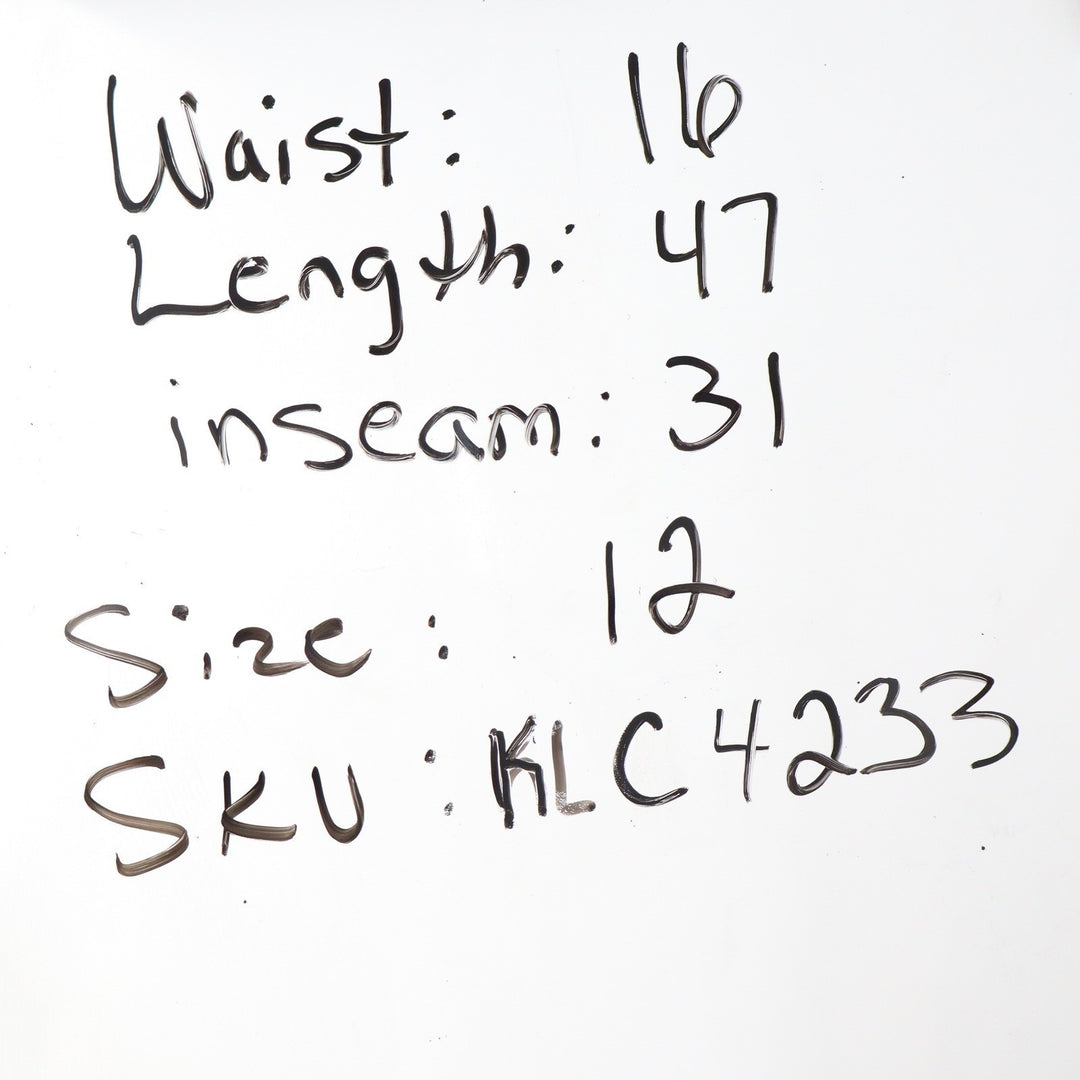 Waist: 16
Length: 47
inseam: 31
Size: 12
SKU: KLC4233